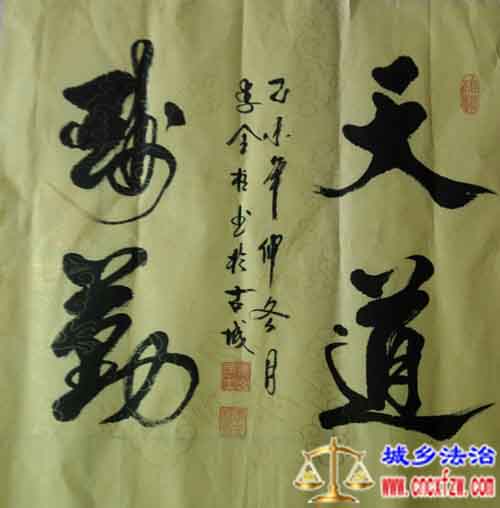 天道
酬勤
乙未年仲冬月
李全柱书於古城
城乡法治
www.cncxfzw.com